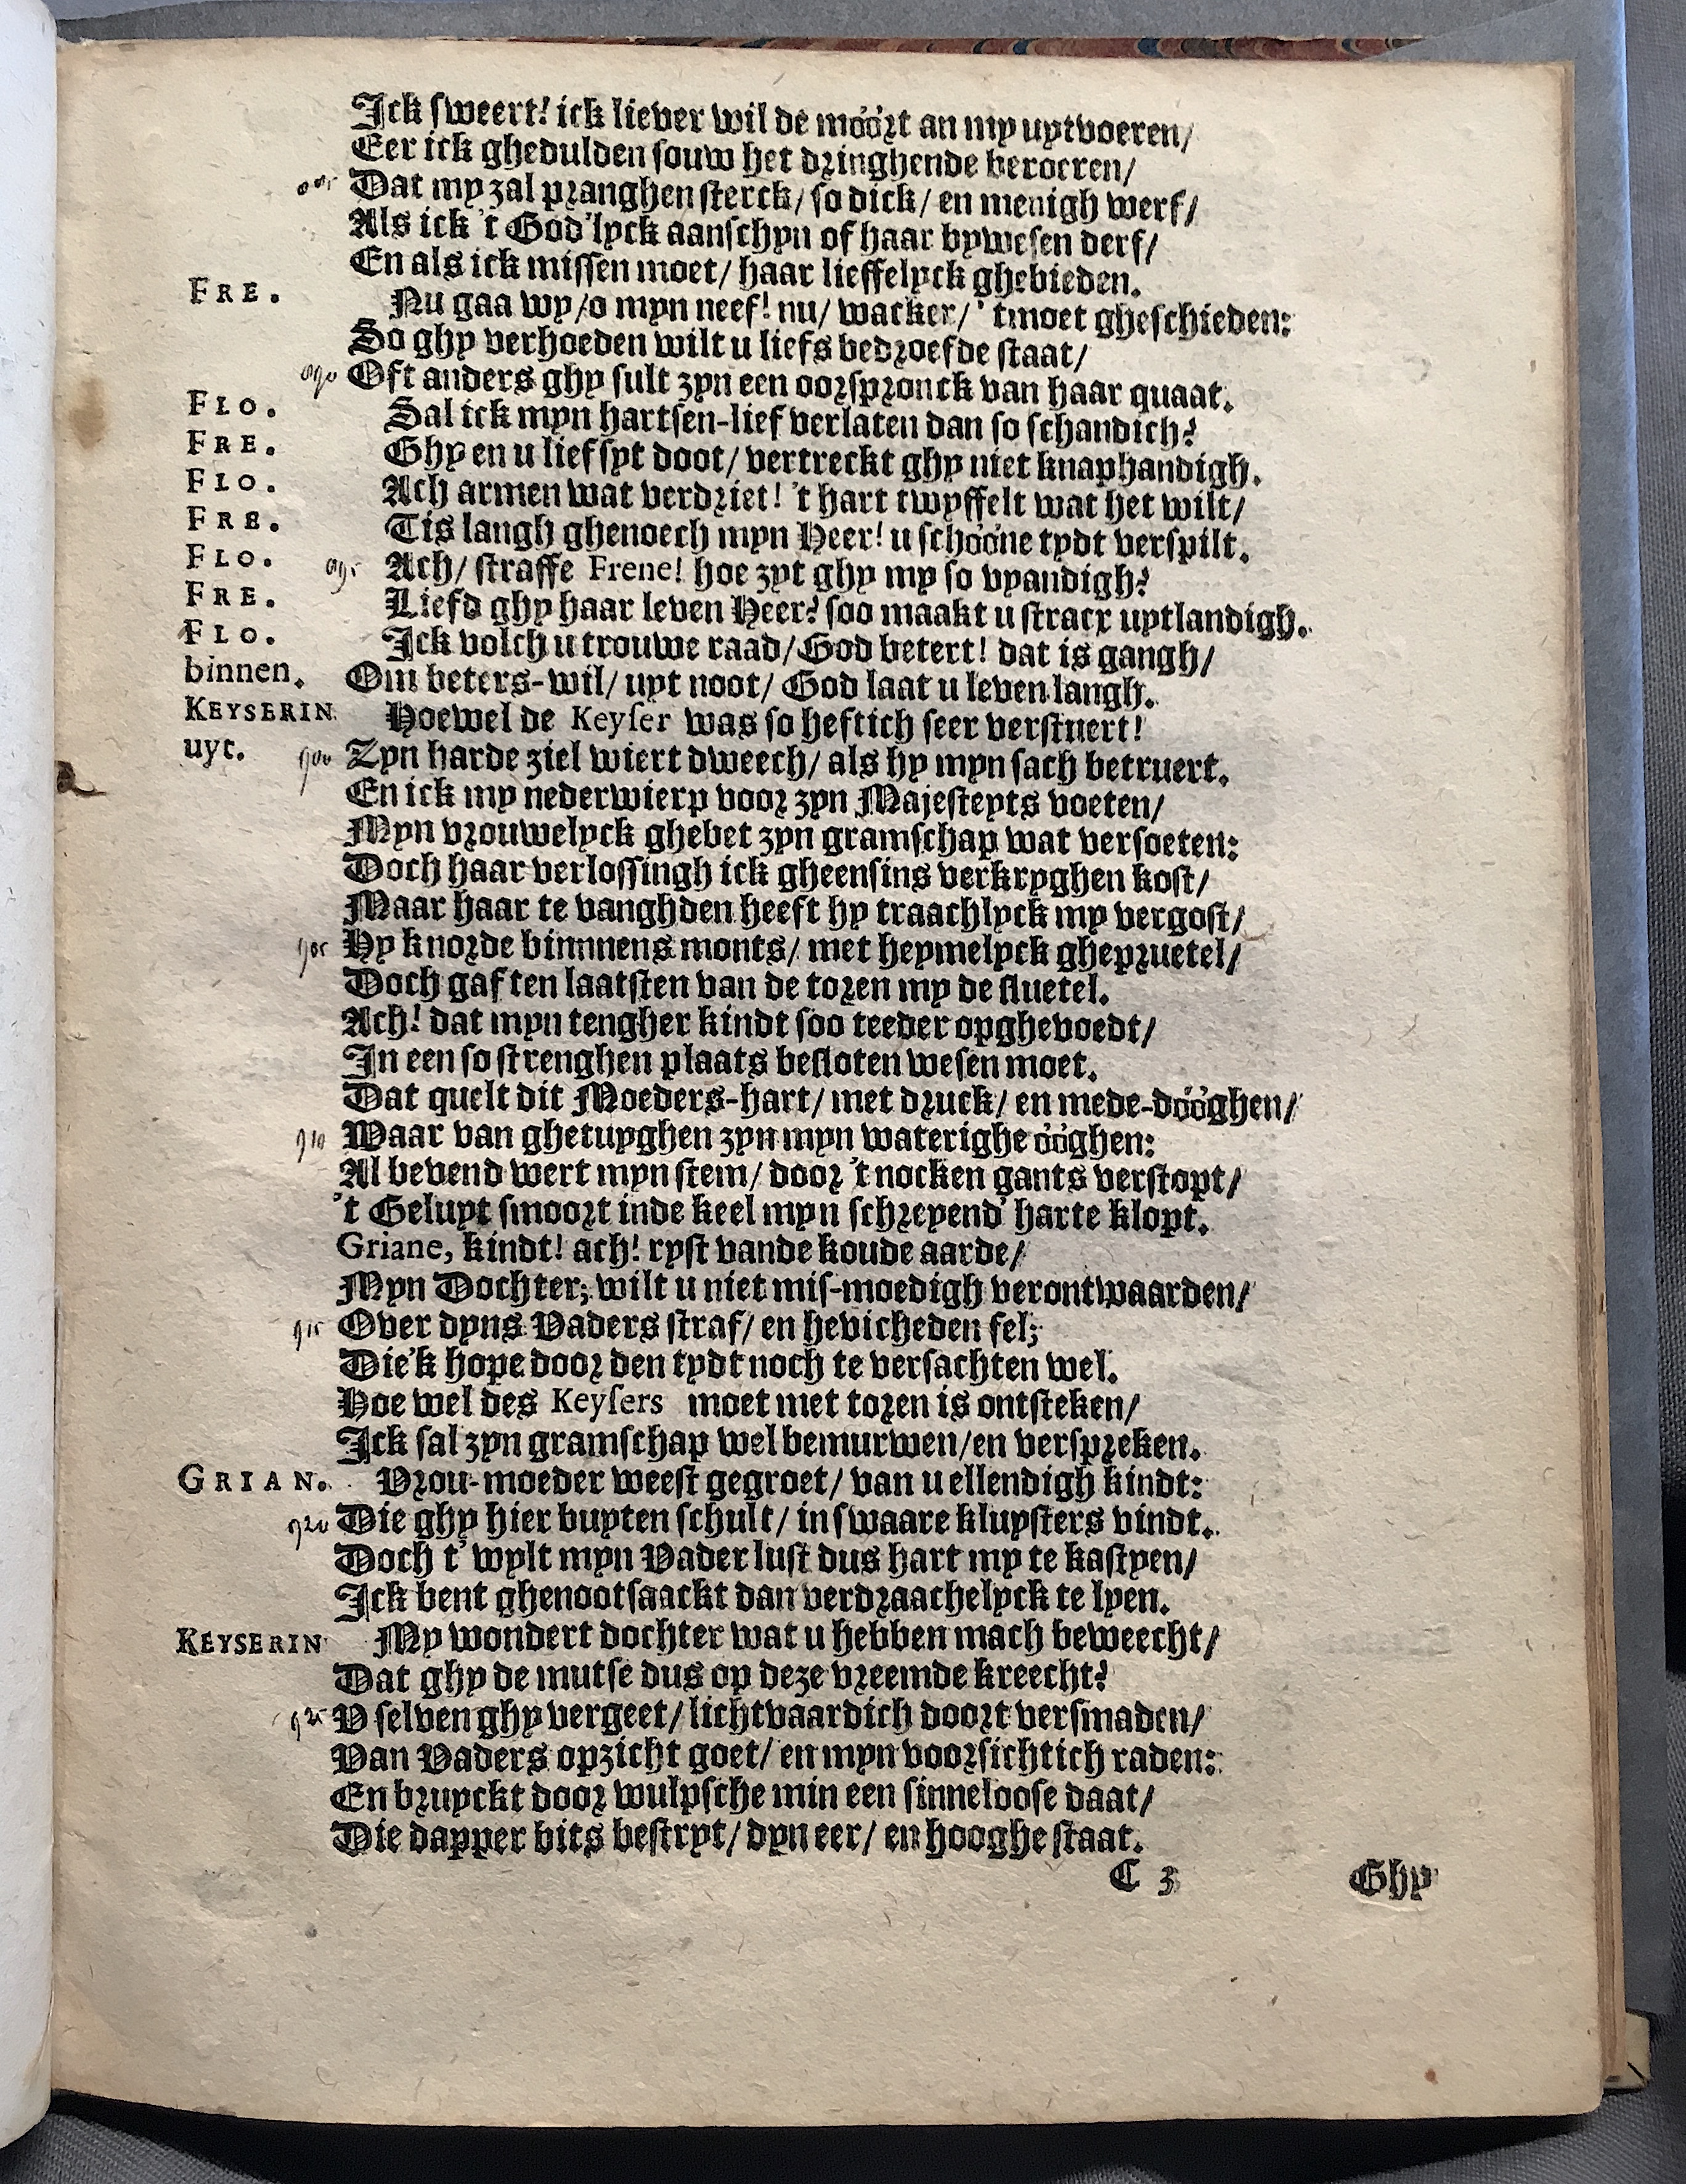 Ick sweert! ick liever wil de móórt an my uytvoeren/
Eer ick ghedulden souw het dringhende beroeren/
885 Dat my zal pranghen sterck/ so dick/ en menigh werf/
Als ick 't God'lyck aanschyn of haar bywesen derf/
En als ick missen moet/ haar lieffelyck ghebieden.
FRE. Nu gaa wy/o myn neef! nu/ wacker/ 't moet gheschieden:
So ghy verhoeden wilt u liefs bedroefde staat/
890 Oft anders ghy sult zyn een oorspronck van haar quaat.
FLO. Sal ick myn hartsen-lief verlaten dan so schandich?
FRE. Ghy en u lief syt doot/ vertreckt ghy niet knaphandigh.
FLO. Ach armen wat verdriet! 't hart twyffelt wat het wilt/
FRE. Tis langh ghenoech myn Heer! u schóóne tydt verspilt.
FLO. 895 Ach/ straffe Frene! hoe zyt ghy my so vyandigh?
FRE. Liefd ghy haar leven Heer? soo maakt u stracx uytlandigh.
FLO. Ick volch u trouwe raad/ God betert! dat is gangh/
binnen. Om beters-wil/ uyt noot/ God laat u leven langh.
KEYSERIN. Hoewel de Keyser was so heftich seer verstuert!
uyt. 900 Zyn harde ziel wiert dweech/ als hy myn sach betruert.
En ick my nederwierp voor zyn Majesteyts voeten/
Myn vrouwelyck ghebet zyn gramschap wat versoeten:
Doch haar verlossingh ick gheensins verkryghen kost/
Maar haar te vanghden heeft hy traachlyck my vergost/
905 Hy knorde binnnens monts/ met heymelyck ghepruetel/
Doch gaf ten laatsten van de toren my de sluetel.
Ach! dat myn tengher kindt soo teeder opghevoedt/
In een so strenghen plaats besloten wesen moet.
Dat quelt dit Moeders-hart/ met druck/ en mede-dóóghen/
910 Waar van ghetuyghen zyn myn waterighe óóghen:
Al bevend wert myn stem/ door 't nocken gants verstopt/
't Geluyt smoort inde keel myn schreyend' harte klopt.
Griane, kindt! ach! ryst vande koude aarde/
Myn Dochter; wilt u niet mis-moedigh verontwaarden/
915 Over dyns Vaders straf/ en hevicheden fel;
Die'k hope door den tydt noch te versachten wel.
Hoe wel des Keysers moet met toren is ontsteken/
Ick sal zyn gramschap wel bemurwen/en verspreken.
GRIAN. Vrou-moeder weest gegroet/ van u ellendigh kindt:
920 Die ghy hier buyten schult/ in swaare kluysters vindt.
Doch t' wylt myn Vader lust dus hart my te kastyen/
Ick bent ghenootsaackt dan verdraachelyck te lyen.
KEYSERIN My wondert dochter wat u hebben mach beweecht/
Dat ghy de mutse dus op deze vreemde kreecht?
925 V selven ghy vergeet/ lichtvaardich doort versmaden/
Van Vaders opzicht goet/ en myn voorsichtich raden:
En bruyckt door wulpsche min een sinneloose daat/
Die dapper bits bestryt/ dyn eer/ en hooghe staat.
C 3 Ghy